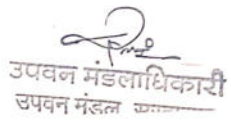 उपवन मंडलाधिकारी
उपवन मंडल